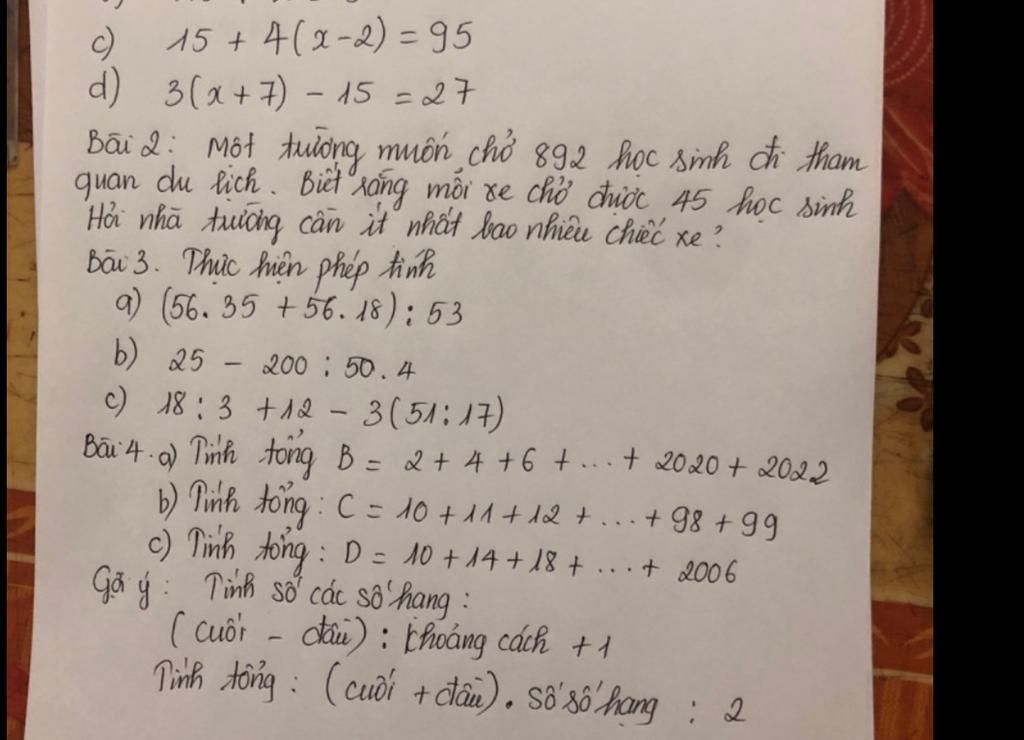 c) 15 + 4(x-2) = 95
d) 3(x+7) - 15 = 27
Bài 2: Một trường muốn chở 892 học sinh đi tham
quan du lịch. Biết rằng mỗi xe chở được 45 học sinh
Hỏi nhà trường cần ít nhất bao nhiêu chiếc xe?
Bài 3. Thực hiện phép tính
a) (56.35 + 56.18) : 53
b) 25 - 200 : 50.4
c) 18 : 3 + 12 - 3(51:17)
Bài 4. a) Tính tổng B = 2 + 4 + 6 + ... + 2020 + 2022
b) Tính tổng : C = 10 + 11 + 12 + ... + 98 + 99
c) Tính tổng : D = 10 + 14 + 18 + ... + 2006
Gợi ý : Tính số các số hạng :
(cuối - đầu) : khoảng cách + 1
Tính tổng : (cuối + đầu). số số hạng : 2